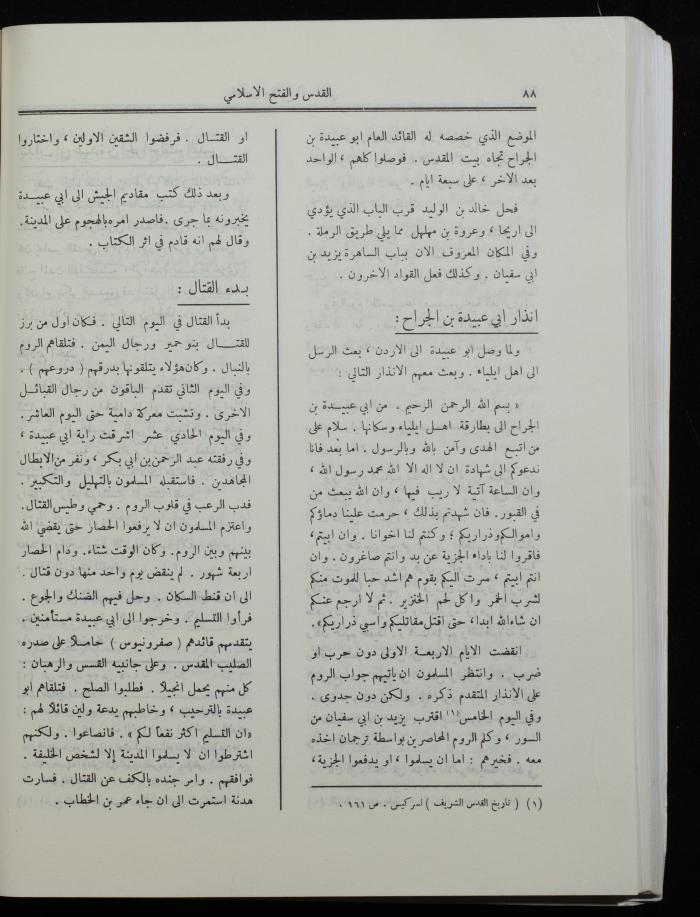 ٨٨
القدس والفتح الاسلامي
الموضع الذي خصصه له القائد العام ابو عبيدة بن
الجراح تجاه بيت المقدس . فوصلوا كلهم ، الواحد
بعد الاخر ، على سبعة ايام .
فحل خالد بن الوليد قرب الباب الذي يؤدي
الى اريحا ، وعروة بن مهلهل مما يلي طريق الرملة .
وفي المكان المعروف الان بباب الساهرة يزيد بن
ابي سفيان . وكذلك فعل القواد الاخرون .
انذار ابي عبيدة بن الجراح :
ولما وصل ابو عبيدة الى الاردن ، بعث الرسل
الى اهل ايلياء . وبعث معهم الانذار التالي :
« بسم الله الرحمن الرحيم . من ابي عبيـدة بن
الجراح الى بطارقة اهـل ايلياء وسكانها . سلام على
من اتبع الهدى وآمن بالله وبالرسول . اما بعد فانا
ندعوكم الى شهادة ان لا اله الا الله محمد رسول الله ،
وان الساعة آتية لا ريب فيها ، وان الله يبعث من
في القبور. فان شهدتم بذلك ، حرمت علينا دماؤكم
واموالكم وذراريكم ؛ وكنتم لنا اخوانا . وان ابيتم ،
فاقروا لنا باداء الجزية عن يد وانتم صاغرون . وان
انتم ابيتم ، سرت اليكم بقوم هم اشد حبا للموت منكم
لشرب الخمر واكل لحم الخنزير . ثم لا ارجع عنـكم
ان شاءالله ابدا ، حتى اقتل مقاتليكم وأسبي ذراريكم».
انقضت الايام الاربعـة الاولى دون حرب او
ضرب . وانتظر المسلمون ان ياتيهم جواب الروم
على الانذار المتقدم ذكره . ولكن دون جدوى .
وفي اليوم الخامس (١) اقترب يزيد بن ابي سفيان من
السور ، وكلم الروم المحاصرين بواسطة ترجمان اخذه
معه . فخبرهم : اما ان يسلموا ، او يدفعوا الجزية ،
(١) ( تاريخ القدس الشريف ) لسركيس . ص ١٦١ .
او القتـال . فرفضوا الشقين الاولين ، واختاروا
القتـــال .
وبعد ذلك كتب مقاديم الجيش الى ابي عبيـدة
يخبرونه بما جرى . فاصدر امره بالهجوم على المدينة.
وقال لهم انه قادم في اثر الكتاب .
بـدء القتال :
بدأ القتال في اليوم التالي . فـكان اول من برز
للقتـــال بنو حمير ورجال اليمن . فتلقاهم الروم
بالنبال . وكان هؤلاء يتلقونها بدرقهم ( دروعهم ) .
وفي اليوم الثاني تقدم الباقون من رجال القبائـل
الاخرى . ونشبت معركة دامية حتى اليوم العاشر.
وفي اليوم الحادي عشر اشرقت راية ابي عبيدة ،
وفي رفقته عبد الرحمن بن ابي بكر ، ونفر من الابطال
المجاهدين . فاستقبله المسلمون بالتهليل والتكبير .
فدب الرعب في قلوب الروم . وحمي وطيس القتال.
واعتزم المسلمون ان لا يرفعوا الحصار حتى يقضي الله
بينهم وبين الروم. وكان الوقت شتاء. ودام الحصار
اربعة شهور . لم ينقض يوم واحد منها دون قتال .
الى ان قنط السكان . وحل فيهم الضنك والجوع .
فرأوا التسليم . وخرجوا الى ابي عبيدة مستأمنين .
يتقدمهم قائدهم ( صفرونيوس ) حامـلاً على صدره
الصليب المقدس . وعلى جانبيه القسس والرهبان :
كل منهم يحمل انجيلاً . فطلبوا الصلح . فتلقاهم ابو
عبيدة بالترحيب ، وخاطبهم بدعة ولين قائلاً لهم :
«ان التسليم اكثر نفعاً لـكم» . فانصاعوا . ولكنهم
اشترطوا ان لا يسلموا المدينة إلا لشخص الخليفة .
فوافقهم . وامر جنده بالكف عن القتال . فسارت
هدنة استمرت الى ان جاء عمر بن الخطاب .